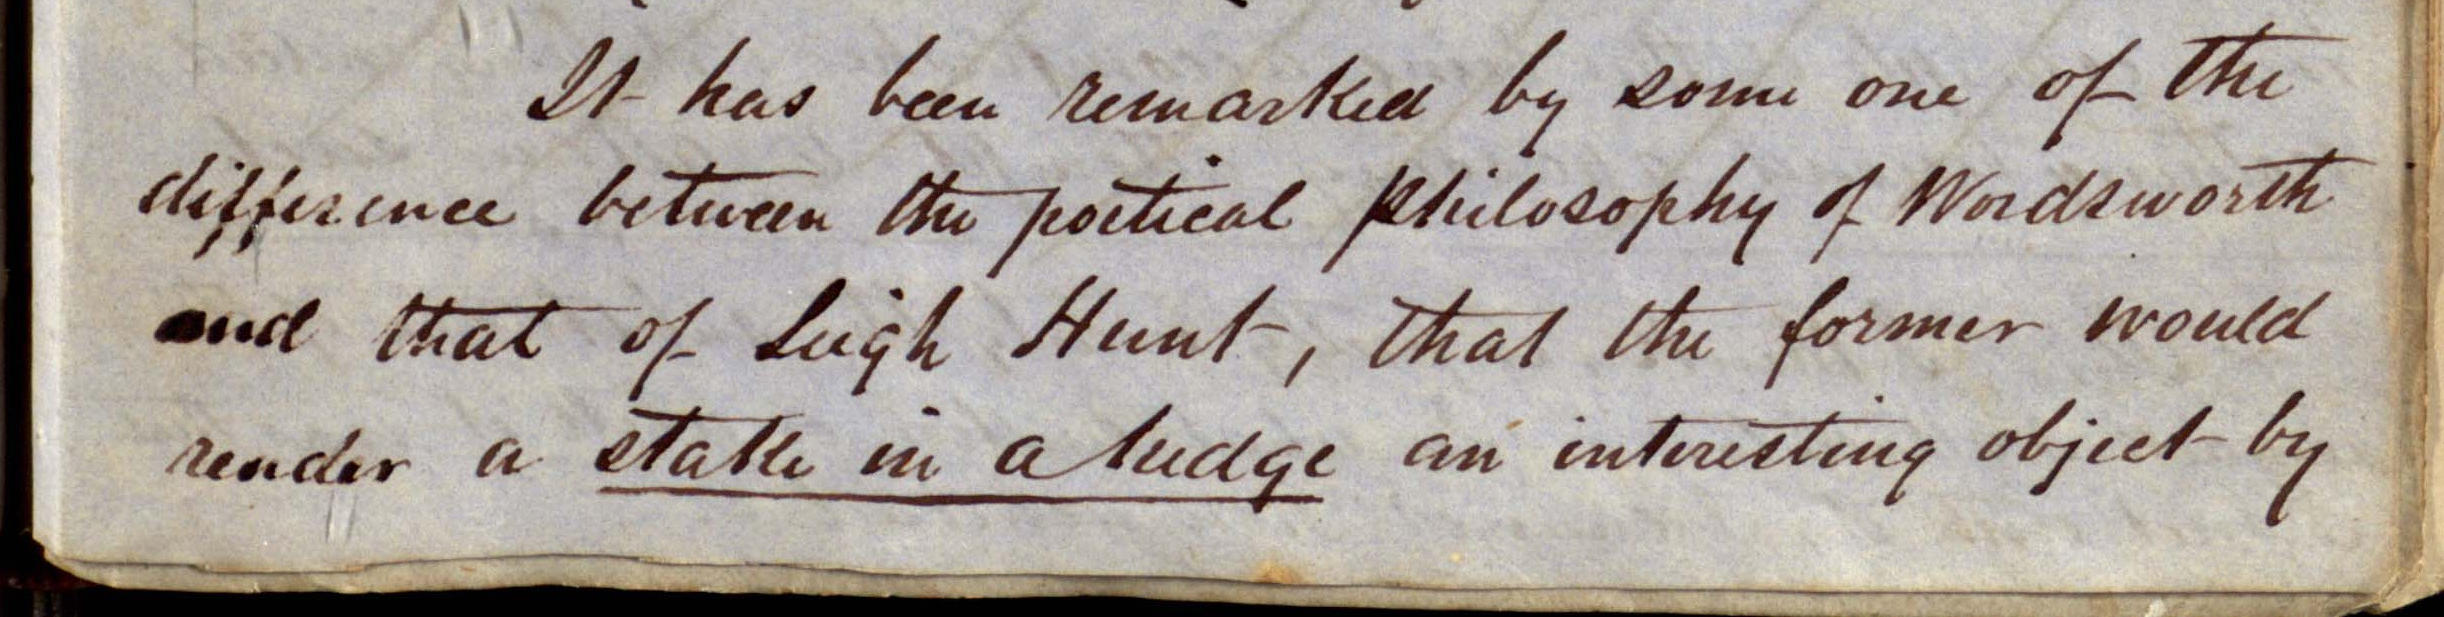 It has been remarked by some one of the
difference between the poetical philosophy of Wordsworth
and that of Leigh Hunt, that the former would
render a stake in a hedge an interesting object by